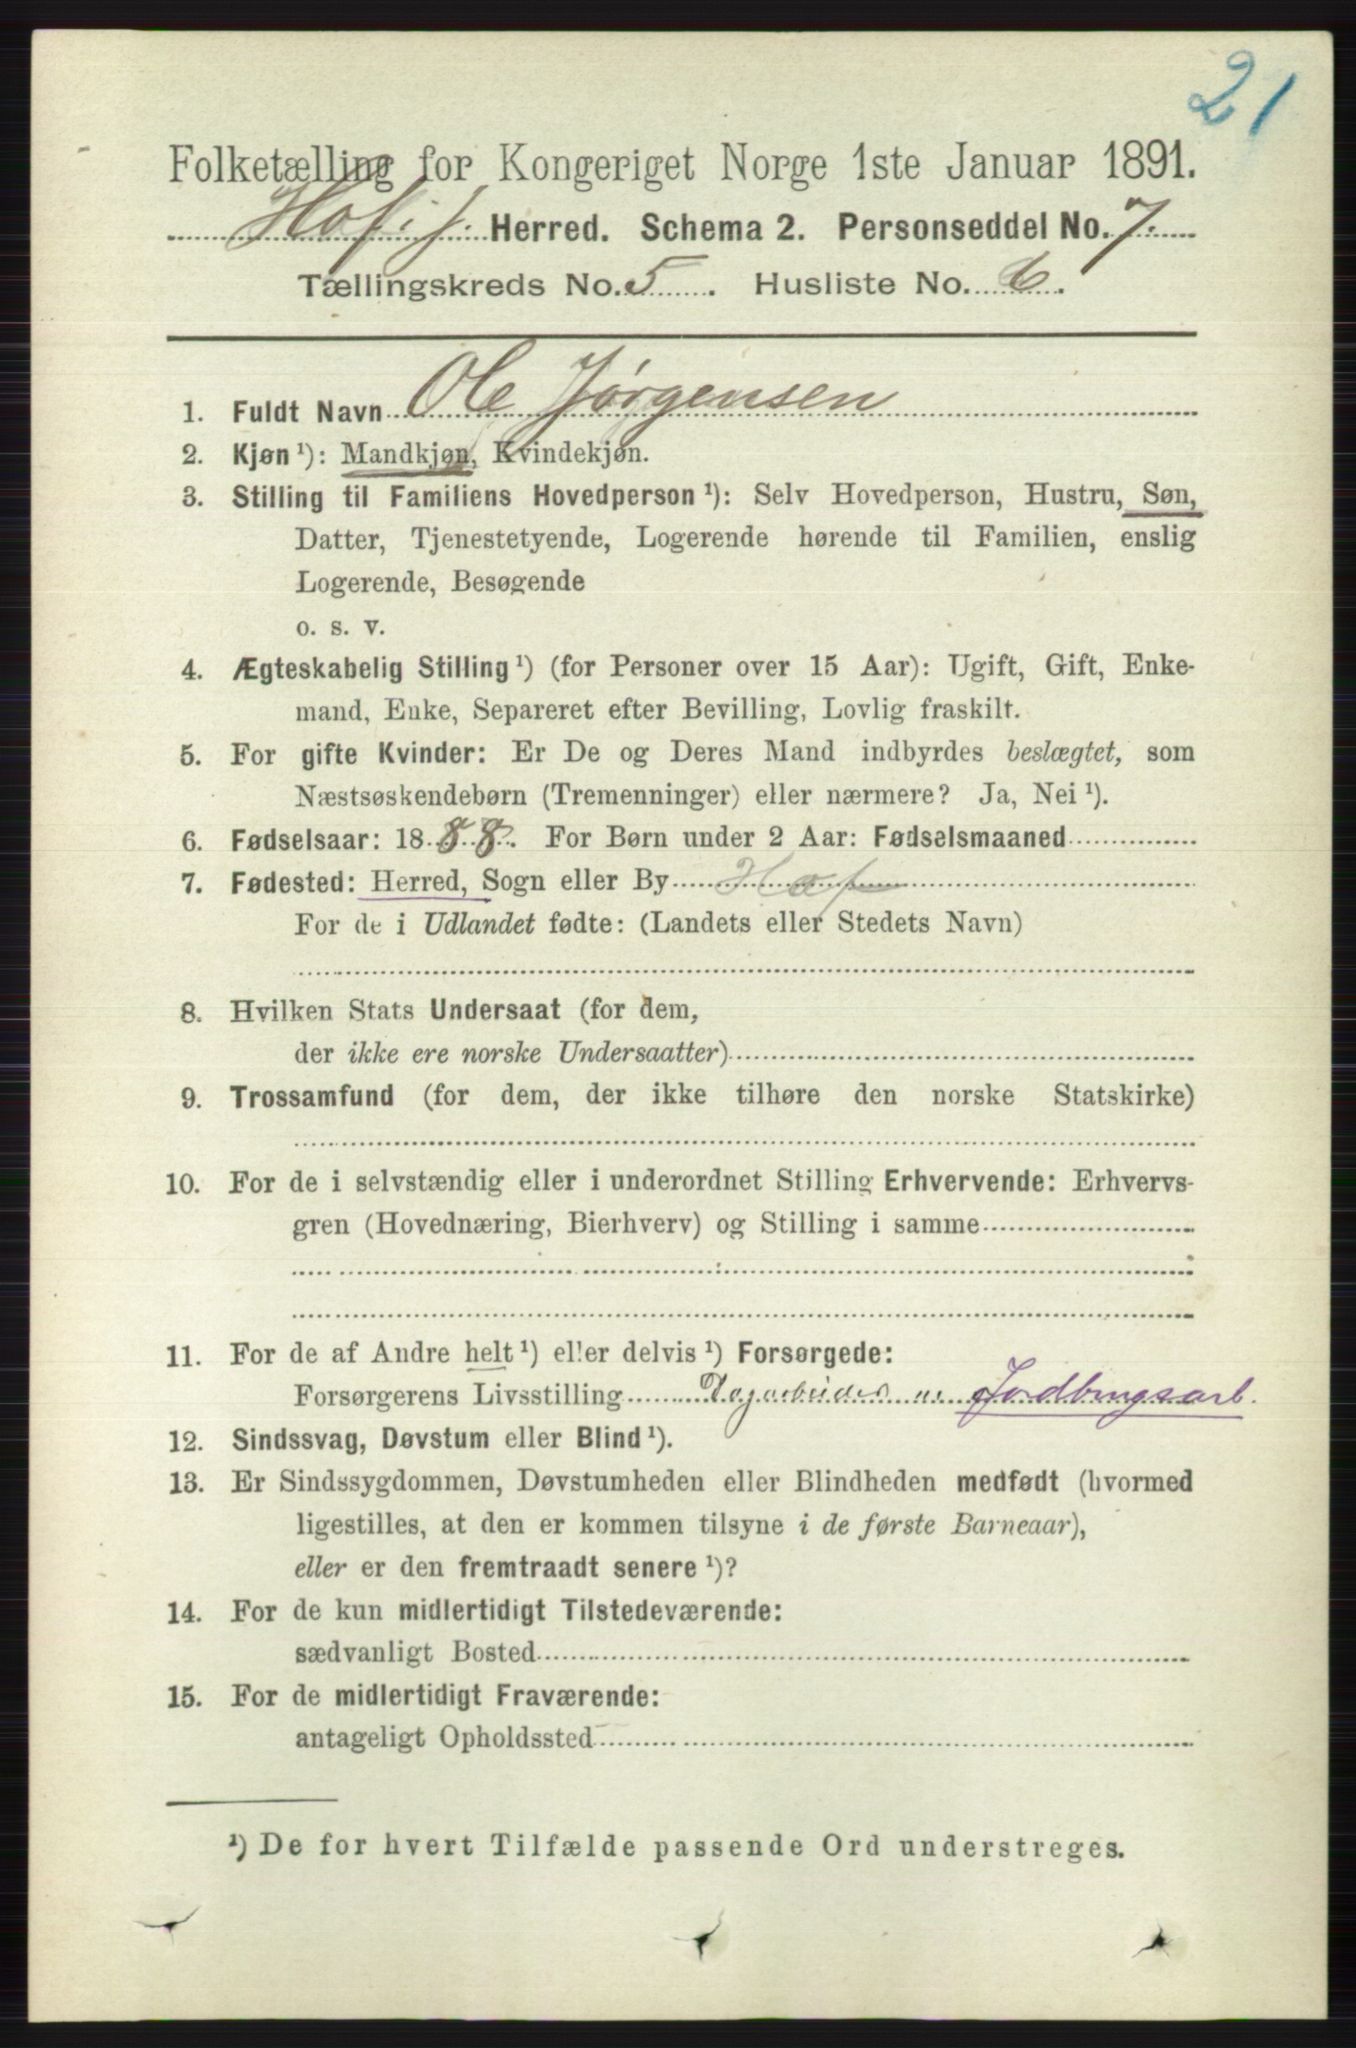 21
Folketælling for Kongeriget Norge 1ste Januar 1891.
Hof i J. Herred. Schema 2. Personseddel No. 7.
Tællingskreds No. 5. Husliste No. 6.
1. Fuldt Navn Ole Jørgensen
2. Kjøn ¹): Mandkjøn, Kvindekjøn.
3. Stilling til Familiens Hovedperson ¹): Selv Hovedperson, Hustru, Søn,
Datter, Tjenestetyende, Logerende hørende til Familien, enslig
Logerende, Besøgende
o. s. v.
4. Ægteskabelig Stilling ¹) (for Personer over 15 Aar): Ugift, Gift, Enke-
mand, Enke, Separeret efter Bevilling, Lovlig fraskilt.
5. For gifte Kvinder: Er De og Deres Mand indbyrdes beslægtet, som
Næstsøskendebørn (Tremenninger) eller nærmere? Ja, Nei ¹).
6. Fødselsaar: 1888. For Børn under 2 Aar: Fødselsmaaned
7. Fødested: Herred, Sogn eller By Hof
For de i Udlandet fødte: (Landets eller Stedets Navn)
8. Hvilken Stats Undersaat (for dem,
der ikke ere norske Undersaatter)
9. Trossamfund (for dem, der ikke tilhøre den norske Statskirke)
10. For de i selvstændig eller i underordnet Stilling Erhvervende: Erhvervs-
gren (Hovednæring, Bierhverv) og Stilling i samme
11. For de af Andre helt ¹) eller delvis ¹) Forsørgede:
Forsørgerens Livsstilling Dagarbeider Jordbrugsarb.
12. Sindssvag, Døvstum eller Blind ¹).
13. Er Sindssygdommen, Døvstumheden eller Blindheden medfødt (hvormed
ligestilles, at den er kommen tilsyne i de første Barneaar),
eller er den fremtraadt senere ¹)?
14. For de kun midlertidigt Tilstedeværende:
sædvanligt Bosted
15. For de midlertidigt Fraværende:
antageligt Opholdssted
¹) De for hvert Tilfælde passende Ord understreges.